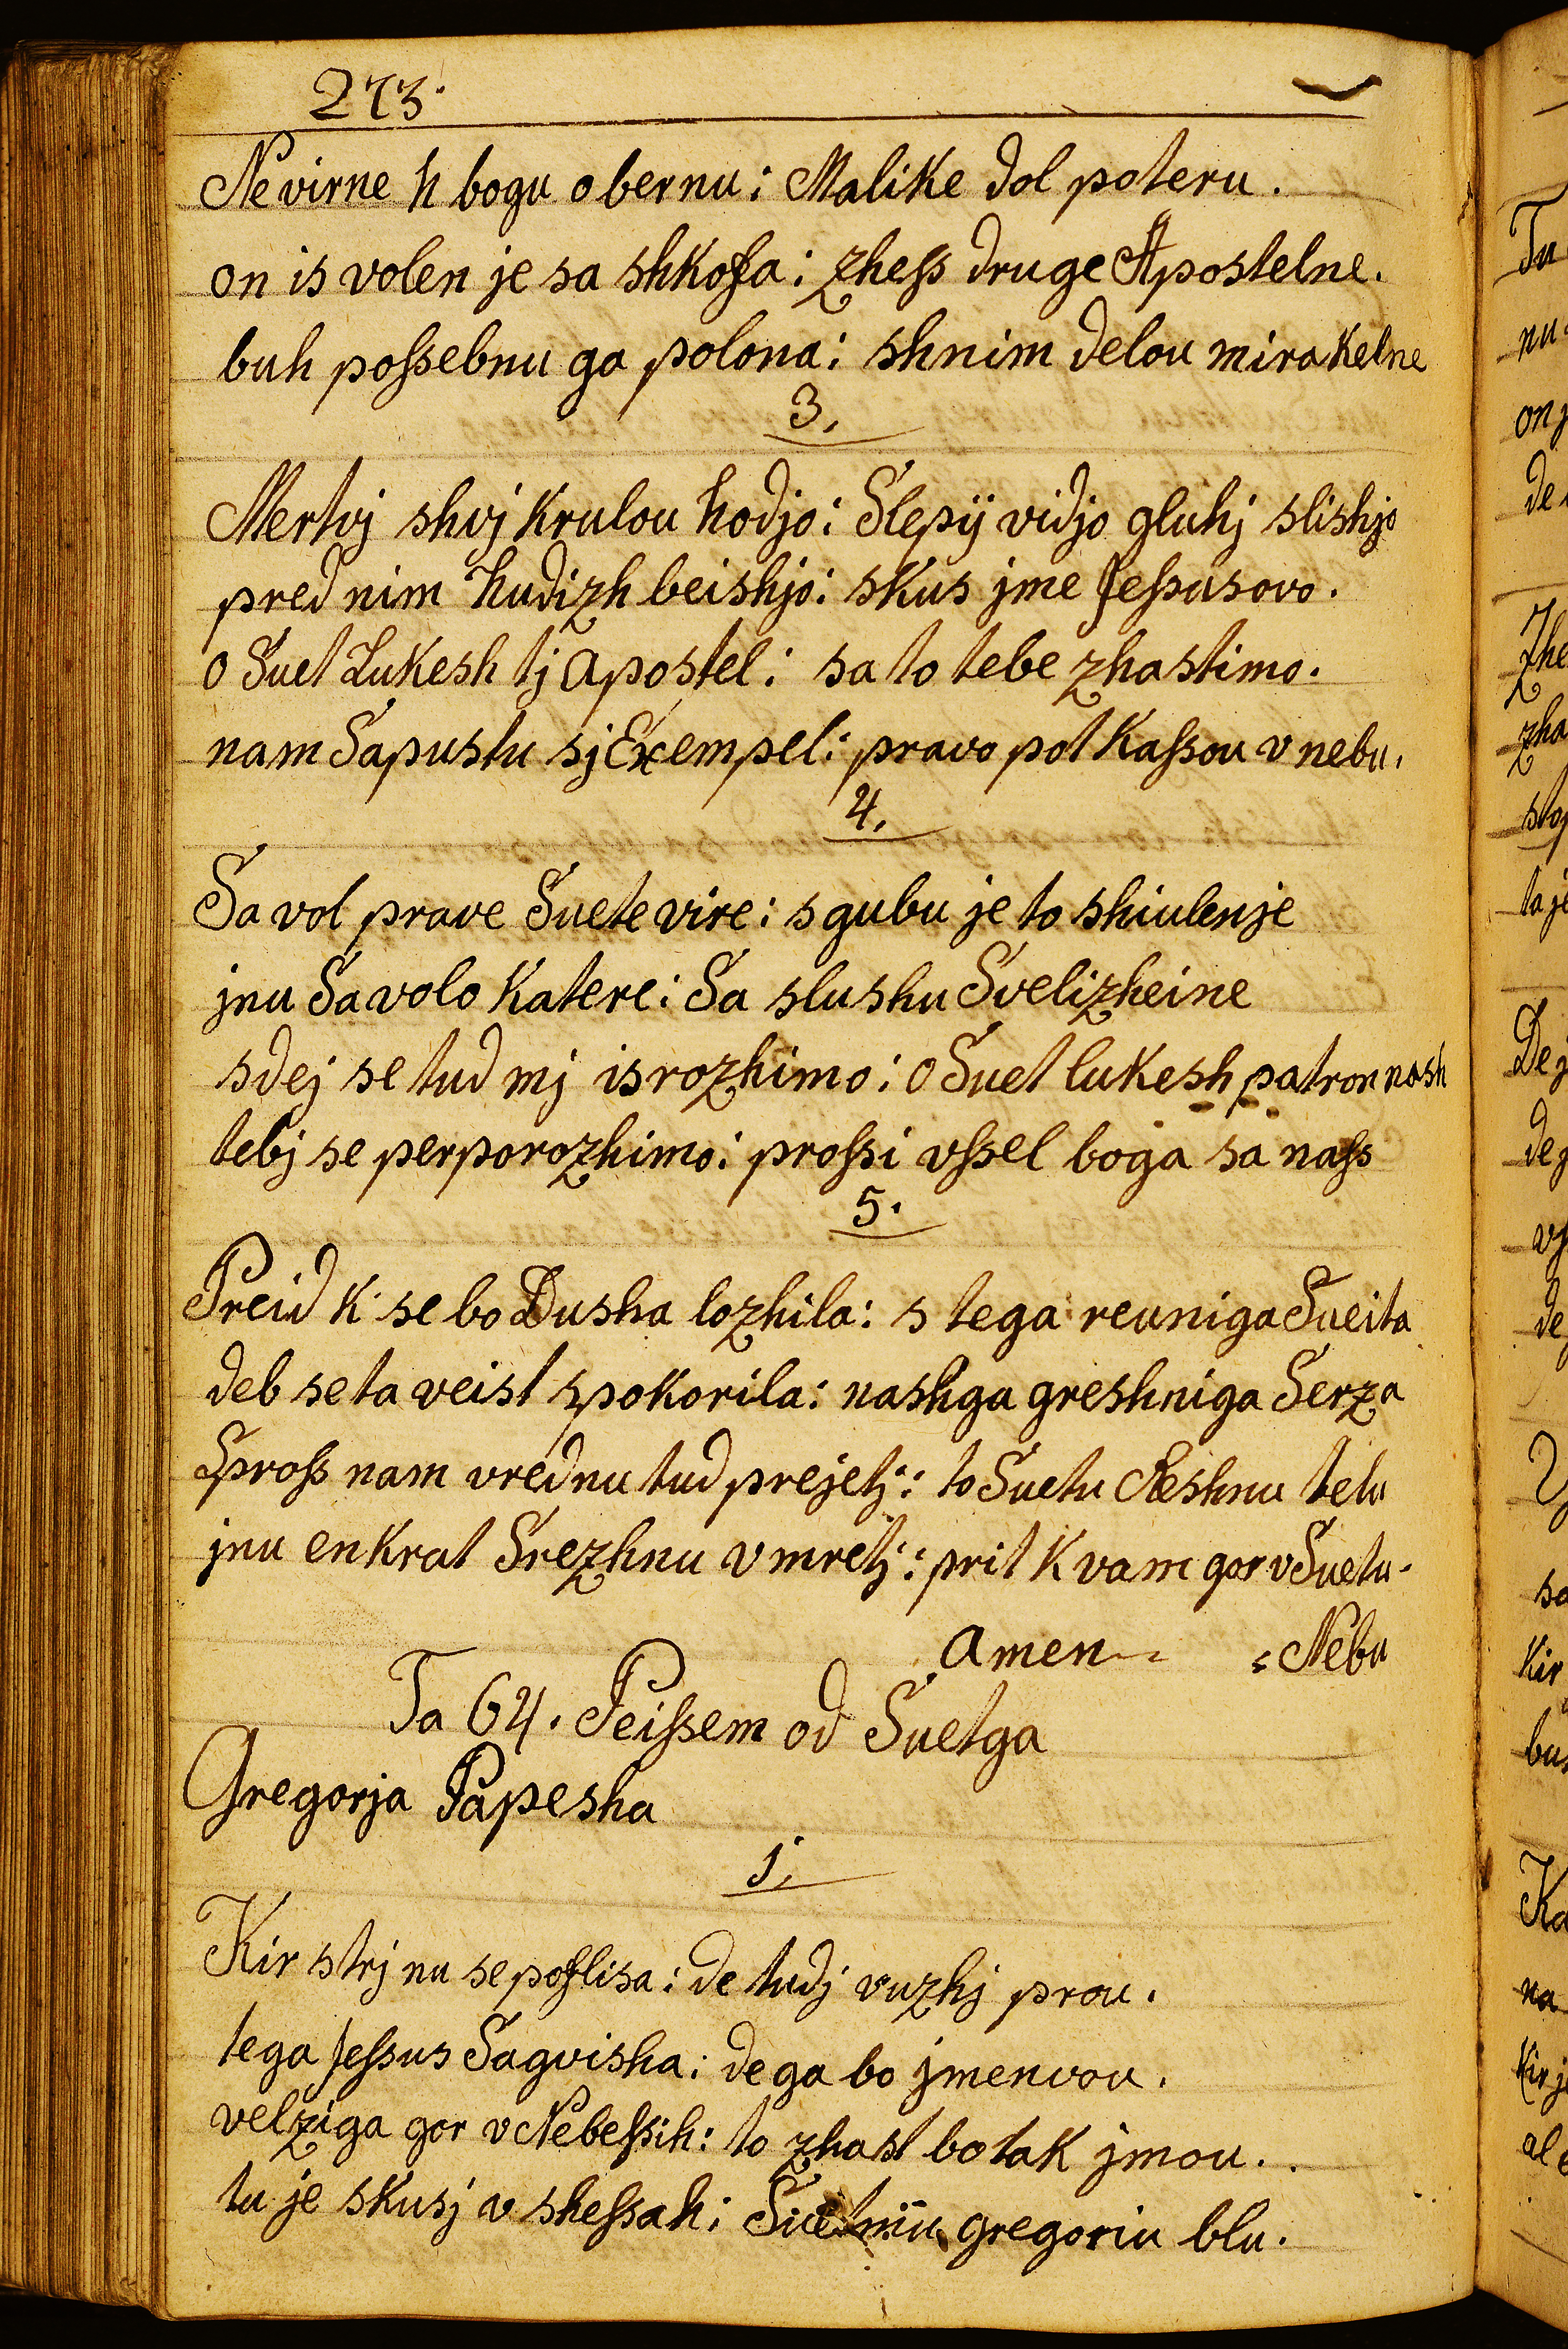 273.
Ne virne h bogu obernu: Malike dol poteru.
on is volen je sa shkoffa: zhess druge Apostelne.
buh possebnu ga polona: shnim delou mirakelne
3.
Mertvj shvj krulou hodjo: Slepÿ vidjo gluhj slishjo
pred nim hudizh beishjo: skus jme Jessusovo.
o Suet Lukesh tj apostel: sa to tebe zhastimo.
nam Sapustu sj Exempel: pravo pot kassou v nebu.
4.
Sa vol prave Suete vire: sgubu je to shiulenje
jnu Sa volo katere: Sa slushu Svelizheine
sdej se tud mj isrozhimo: o Suet lukesh patron nash
tebj se perporozhimo: prossi vssel boga sa nass
5.
Preid k se bo Dusha lozhila: s tega reuniga Sueita
deb se ta veist spokorila: nashga greshniga Serza
Spross nam vrednu tud prejetj: to Suetu Reshnu telu
jnu enkrat Srezhnu vmretj: prit k vam gor v Suetu
amen Nebu
Ta 64. Peissem od Suetga
Gregorja Papesha
1.
Kir strj nu se poflisa: de tudj vuzhj prou.
tega Jessus Sagvisha: de ga bo jmenvou.
velziga gor v Nebessih: to zhast bo tak jmou.
tu je skusj v shessah: gregoriu blu.
Ta
nu
on j
de
Zhe
zha
stop
ta je
De j
de j
vs
de
so
kir
bus
Ka
na
kir j
al